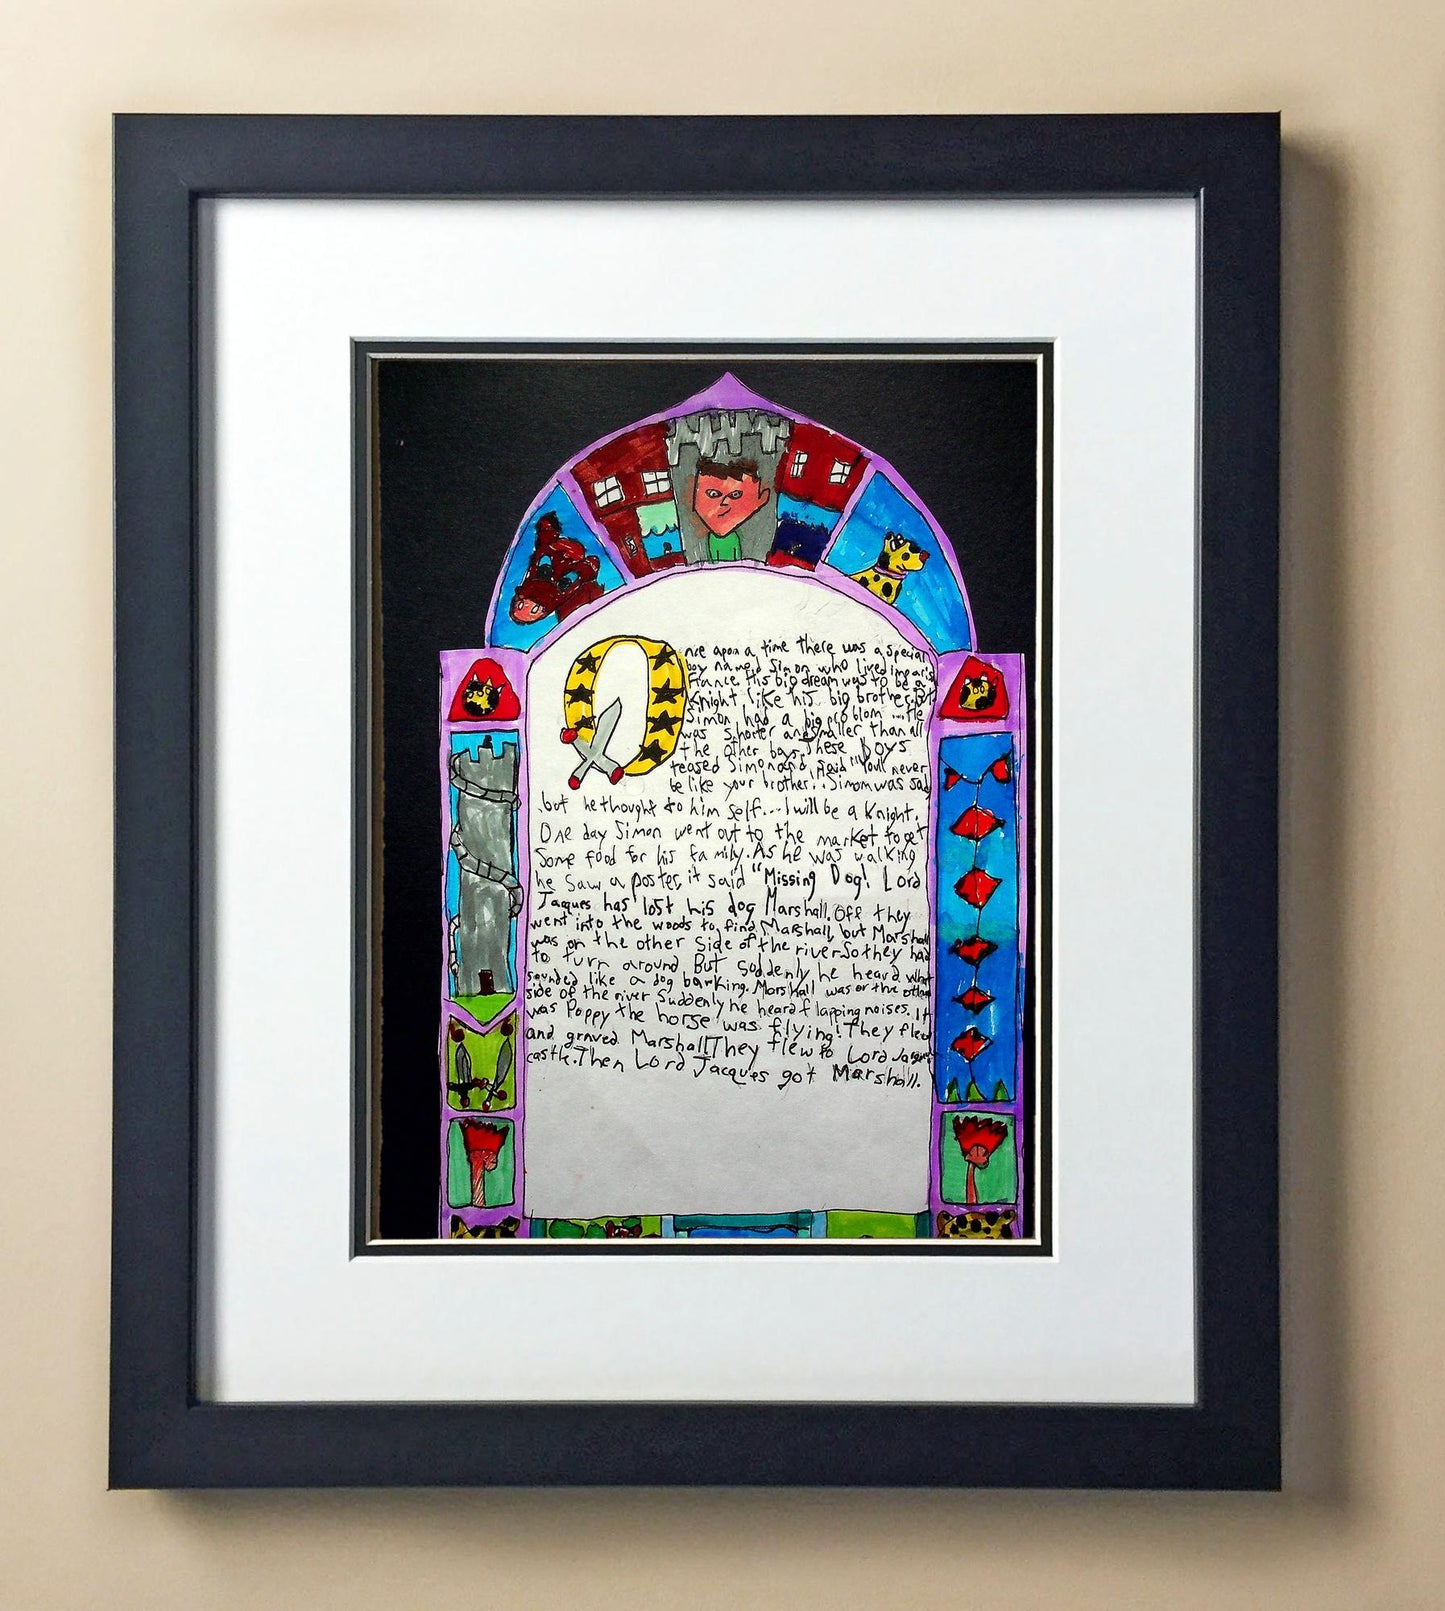 Once apon a time there was a special
boy named Simon who lived in paris
France. His big dream was to be a
Knight like his big brother. But
Simon had a big problom ... He
was shorter and smaller than all
the other boys. These boys
teased Simon and said "You'll never
be like your brother". Simon was sad
but he thought to him self... I will be a Knight.
One day Simon went out to the market to get
some food for his family. As he was walking
he saw a poster, it said "Missing Dog! Lord
Jacques has lost his dog Marshall. Off they
went into the woods to find Marshall, but Marshall
was on the other side of the river So they had
to turn around But Suddenly he heard what
sounded like a dog barking. Marshall was on the other
side of the river Suddenly he heard flapping noises. It
was Poppy the horse was flying! They flew
and Marshall! They flew to Lord Jacques
castle. Then Lord Jacques got Marshall.